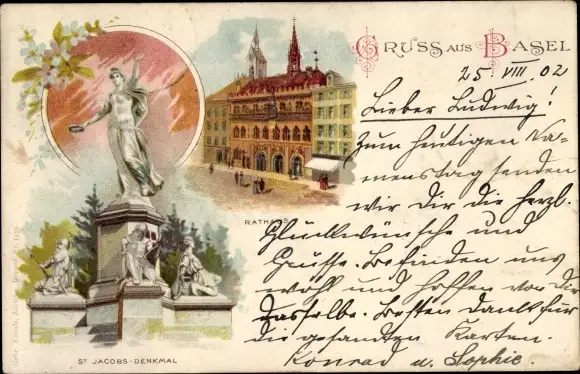 GRUSS AUS BASEL
25 VIII. 02
Lieber Ludwig!
Zum heutigen Na-
menstag senden
wir Dir die herzl.
Glückwünsche und
Grüsse. Befinden uns
wohl und hoffen von Dir
dasselbe. Besten Dank für
die gesandten Karten.
Konrad u. Sophie.
RATHAUS
ST JACOBS-DENKMAL